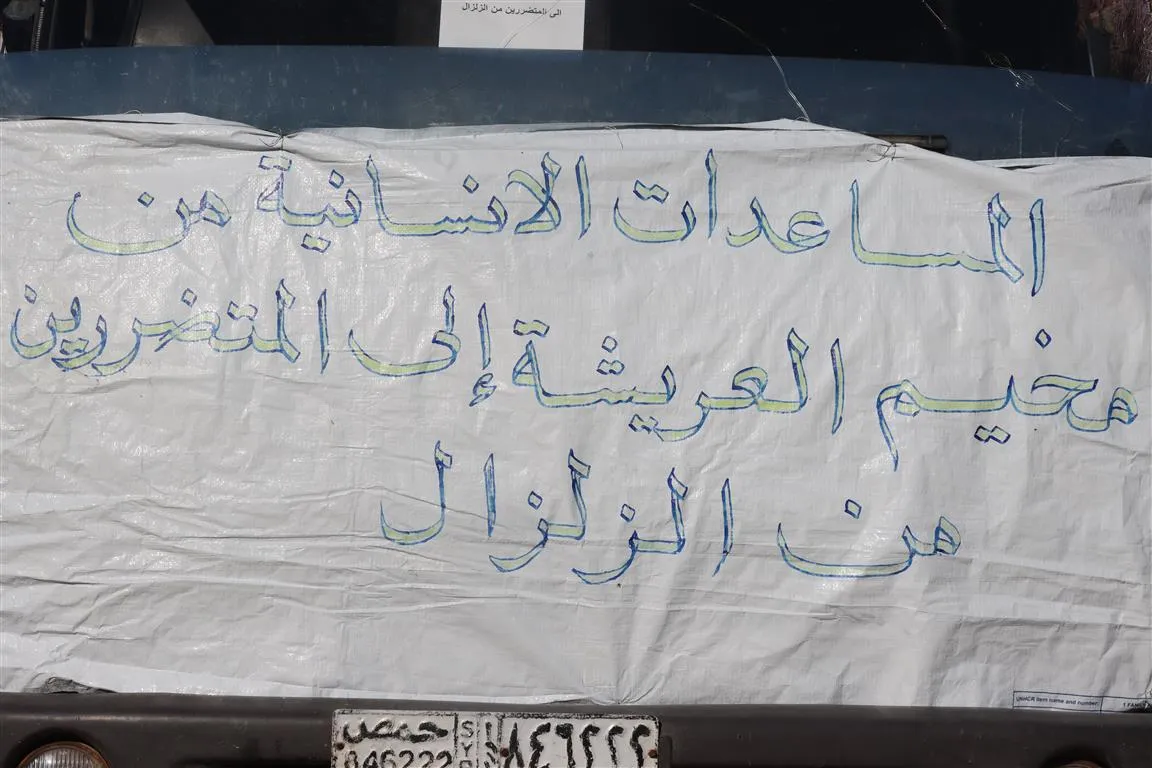 الى المتضررين من الزلزال
المساعدات الانسانية من
مخيم العريشة إلى المتضررين
من الزلزال
UNHCR item name and number:
1 FAMILY
حمص SYR ٨٤٦٢٢٢
846222